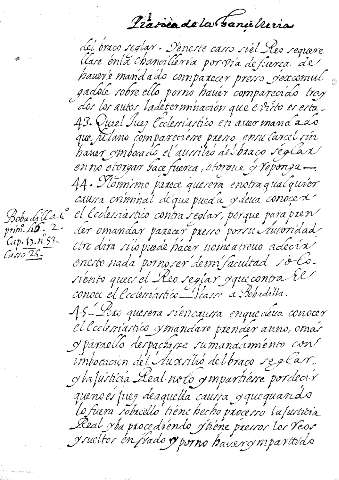 Práctica de la Chancilleria
del braço seglar. Y en este casso si el Reo se quere
llase en la Chancilleria por via de fuerça de
haverle mandado comparecer presso y excomul
gadole sobre ello por no haver comparecido tray
dos los autos la determinacion que e visto es esta.
43. Que el Juez Ecclesiastico en aver mandado
que fulano compareciesse preso en su carcel sin
haver ymbocado el auxilio del braço seglar
en no otorgar hace fuerça, otorgue y reponga
44. Lo mismo parece que sera en otra qualquier
causa criminal de que pueda y deva conocer
el Ecclesiastico contra seglar, porque para pren
der o mandar parecer presso por su autoridad
Bobadilla
Cap. 17. n. 57.
en esto nada por no ser de mi facultad solo
siento que es el Reo seglar, y que contra el
conoce el Ecclesiastico. Bobadilla.
45. Pero que sera si en causa en que deva conocer
el Ecclesiastico y mandare prender a uno, o mas
y para ello despachasse su mandamiento con
imbocacion del auxilio del braço seglar,
y la Justicia Real no lo ympartiesse por decir
que no es juez de aquella causa y que quando
lo fuera sobre ello tiene hecho processo la Justicia
Real y ba procediendo y tiene pressos los reos
y sueltos en fiado y por no haver ympartido